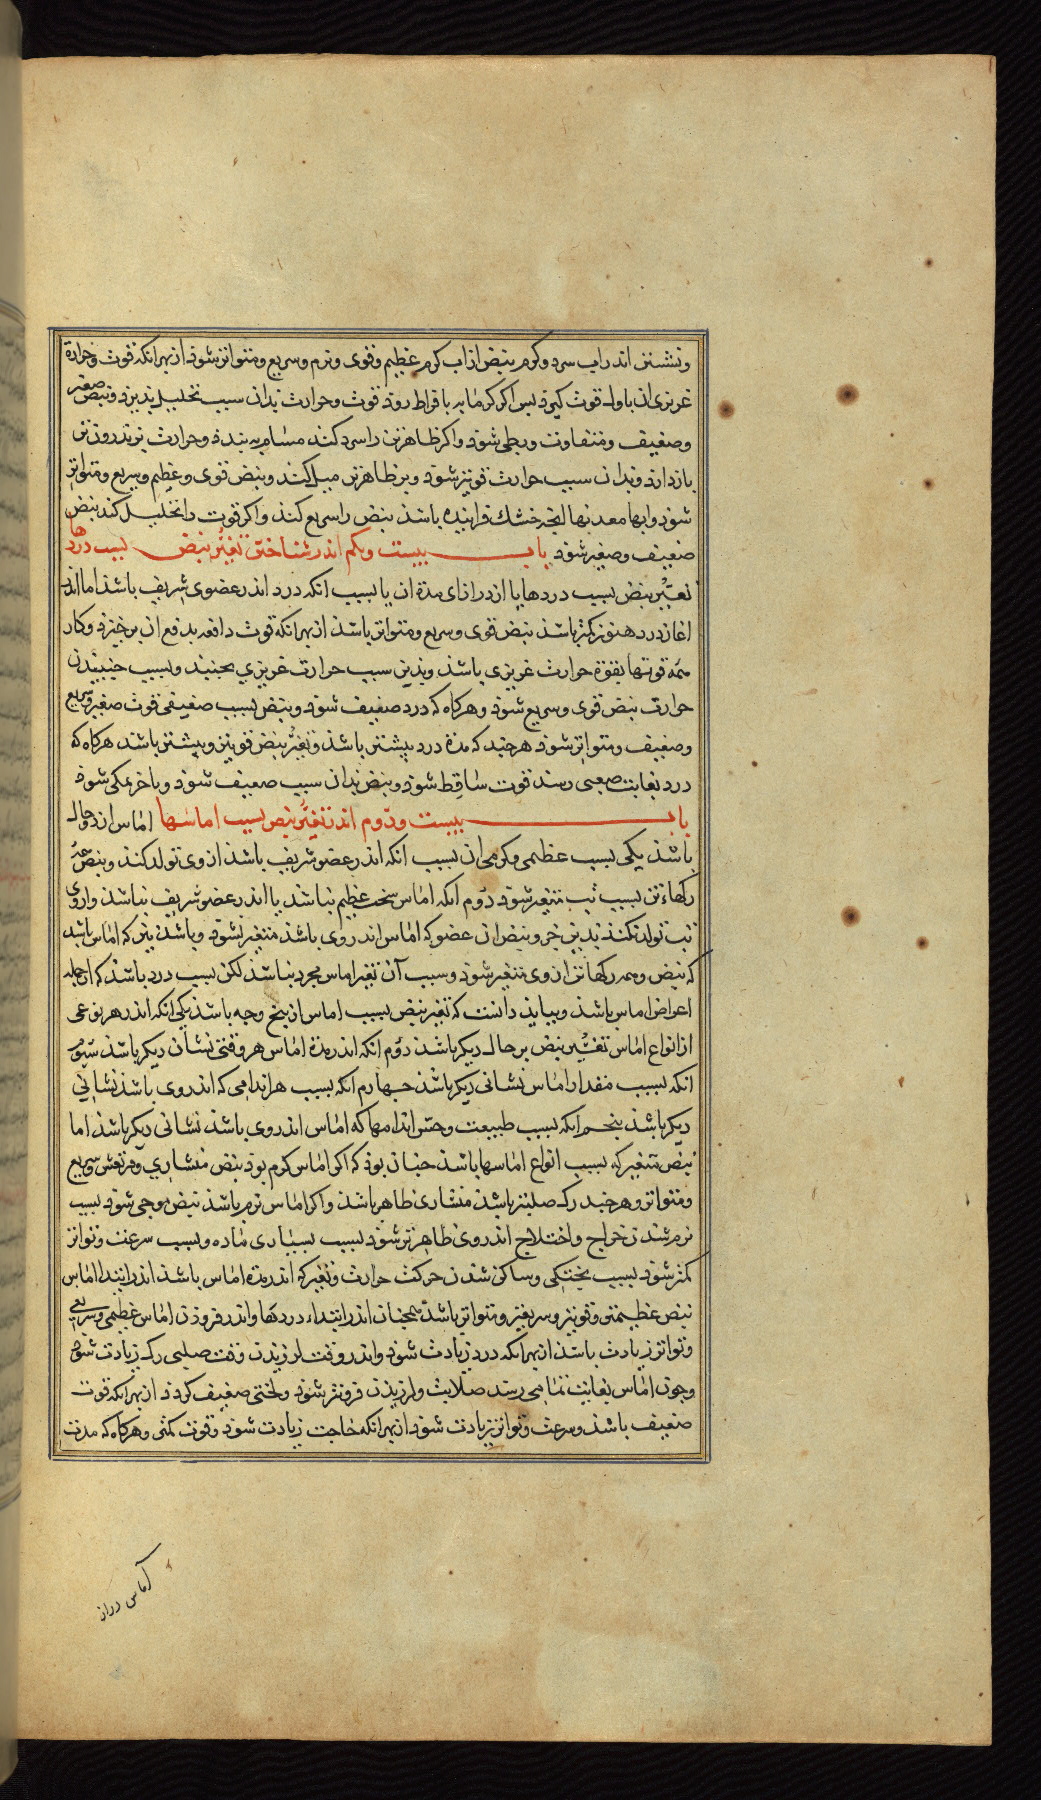 ونشستن اندر اب سرد و کرم نبض از اب کرم عظیم و قوی و نرم و سریع و متواتر شوذ از بهر انکه قوت و حرارة
غریزی ان باول قوت کیرذ بس اکر کرمابه بافراط روذ قوت و حرارت بذان سبب تحلیل بذیرد و نبض صغیر
وضعیف و متفاوت و بطی شوذ واکر ظاهر تن را سرد کند مسام ببندذ و حرارت بزیذ رون تن
بازدارد و بذان سبب حرارت قویتر شوذ و بر ظاهر تن میل کند و نبض قوی و عظیم و سریع و متواتر
شوذ و ابها معدنها انجه خشک فزاینده باشذ نبض را سریع کنذ واکر قوت را تحلیل کند نبض
ضعیف و صغیر شوذ باب بیست ویکم اندر شناختن تغیر نبض بسبب دردها
تغیر نبض بسبب دردها یا از درازای مدة ان یا بسبب انکه درد اندر عضوی شریف باشذ اما اندر
اغاز درد هنوز کمتر باشذ نبض قوی و سریع و متواتر باشذ از بهر انکه قوت دافعه بدفع ان برخیزد و کار
همه قوتها بقوة حرارت غریزی باشذ و بذین سبب حرارت غریزی بجنبد و بسبب جنبیدن
حرارت نبض قوی و سریع شوذ و هرکاه که درد ضعیف شوذ و نبض بسبب ضعیفی قوت صغیر و سریع
وضعیف و متواتر شوذ هرجند که مدة درد بیشتر باشذ و تغیر نبض قویتر و بیشتر باشد هرکاه که
درد بغایت صعبی رسد قوت ساقط شوذ و نبض بذان سبب ضعیف شوذ و باخر نملی شوذ
باب بیست ودوم اندر تغیر نبض بسبب اماسها اماس از دو حال
باشذ یکی بسبب عظیمی و کرمی ان بسبب انکه اندر عضو شریف باشذ از وی تولد کند و نبض همه
رکهاء تن بسبب تب متغیر شوذ دوم انکه اماس سخت عظیم نباشد یا اندر عضو شریف نباشذ و از وی
تب تولد نکند بدین جز و نبض ان عضو که اماس اندر وی باشذ متغیر نشوذ و باشذ نیز که اماس باشد
که نبض و همه رکهاء تن از وی متغیر شوذ و سبب آن تغیر اماس مجرد نباشذ لکن بسبب درد باشذ که از جمله
اعراض اماس باشذ و بباید دانست که تغیر نبض بسبب اماس از بنج وجه باشذ یکی انکه اندر هر نوعی
از انواع اماس تغیر نبض بر حال دیکر باشذ دوم انکه اندر مدة اماس هر وقتی نشان دیکر باشذ سیوم
انکه بسبب مقدار اماس نشانی دیکر باشذ جهارم انکه بسبب هر اندامی که اندر وی باشذ نشانی
دیکر باشذ بنجم انکه بسبب طبیعت و حس اندامها که اماس اندر وی باشذ نشانی دیکر باشذ اما
نبض متغیر که بسبب انواع اماسها باشذ جنان بوذ که اکر اماس کرم بوذ نبض منشاری و مرتعش و سریع
و متواتر و هرجند رک صلبتر باشذ منشاری ظاهر باشذ واکر اماس نرم باشذ نبض موجی شوذ بسبب
نرم شدن خراج و اختلاج اندر وی ظاهرتر شوذ بسبب بسیاری ماده و بسبب سرعت و تواتر
کمتر شوذ بسبب بختکی و ساکن شدن حرکت حرارت و تغیر که اندر مدة اماس باشذ اندر ابتدا اماس
نبض عظیمتر و قویتر و سریعتر و متواتر باشذ همجنان اندر ابتداء دردها و اندر فزوذن اماس عظیمی و سریعی
و تواتر زیادت باشذ از بهر انکه درد زیادت شوذ و اندر وقت لرزیدن وقت صلبی رک زیادت شوذ
و جون اماس بغایت تمامی رسد صلابت و لرزیدن فزونتر شوذ و لختی ضعیف کردذ از بهر انکه قوت
ضعیف باشذ و سرعت و تواتر زیادت شوذ از بهر انکه حاجت زیادت شوذ و قوت کمتر و هرکاه که مدت
آماس دراز